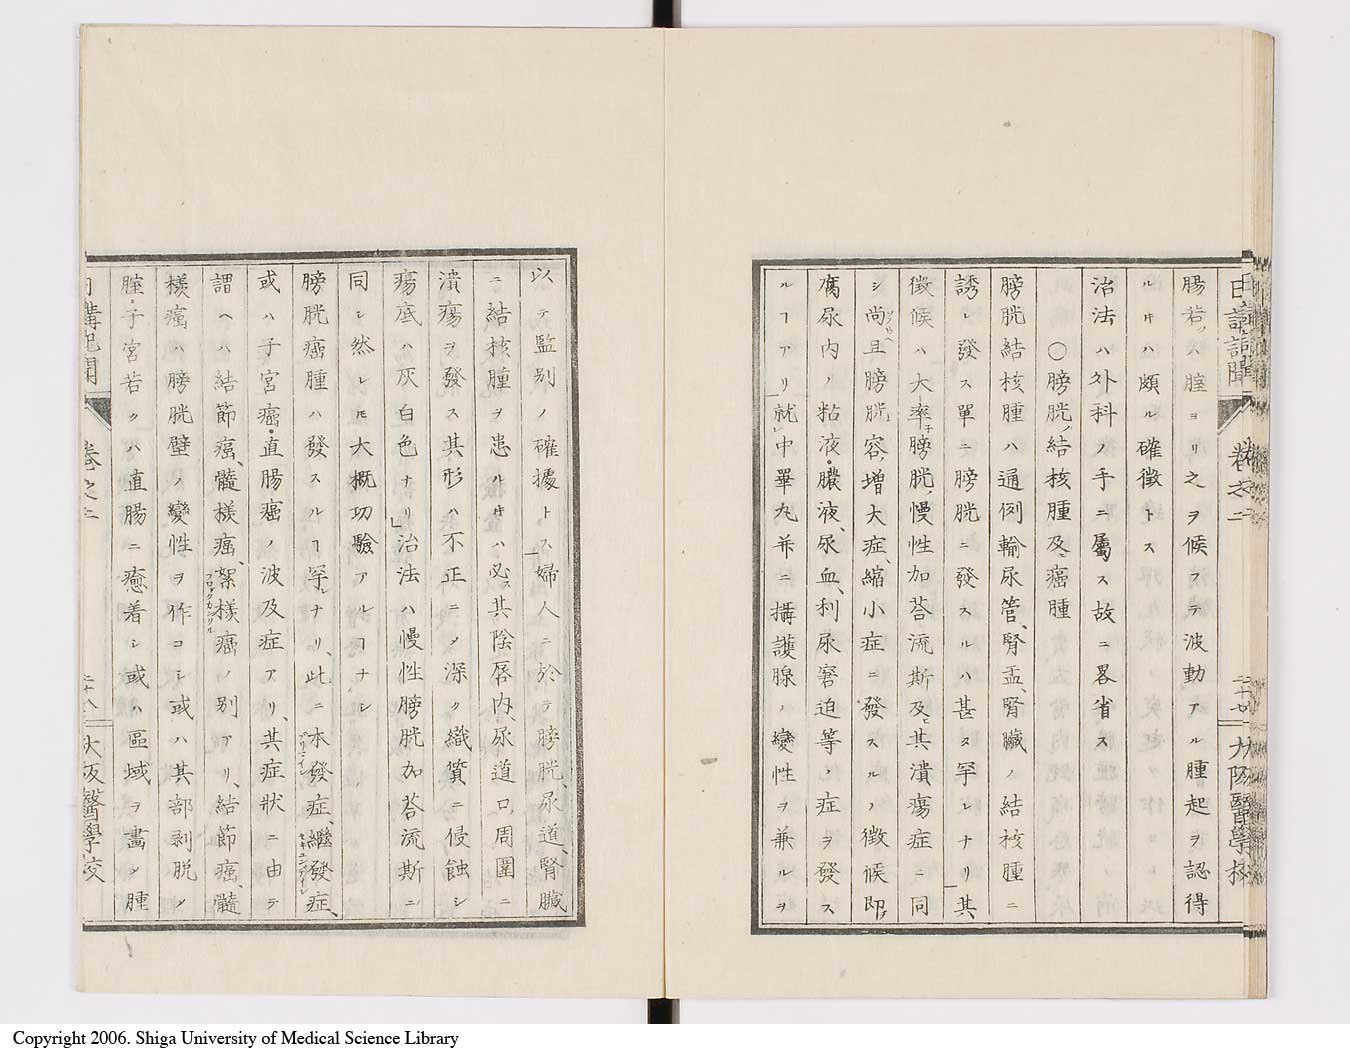 日講記聞 卷之二 二十七 大阪醫學校
腸若ㇰハ腟ヨリ之ヲ候フテ波動アル腫起ヲ認得
ルキハ頗ル確徴トス
治法ハ外科ノ手ニ屬ス故ニ畧省ス
〇膀胱ノ結核腫及ヒ癌腫
膀胱結核腫ハ通例輸尿管、腎盂、腎臟ノ結核腫ニ
誘レ發ス單ニ膀胱ニ發スルハ甚タ罕レナリ其
徴候ハ大率子膀胱ノ慢性加荅流斯及ヒ其潰瘍症ニ同
シ尚且膀胱ノ容增大症、縮小症ニ發スルノ徴候即チ
腐尿内ノ粘液・膿液、尿血、利尿窘迫等ノ症ヲ發ス
ルヿアリ就中睪丸并ニ攝護腺ノ變性ヲ兼ルヲ
以テ監別ノ確據トス婦人ニ於テ膀胱、尿道、腎臟
ニ結核腫ヲ患ルキハ必ス其陰唇内、尿道口ノ周圍ニ
潰瘍ヲ發ス其形ハ不正ニメ深ク織質ニ侵蝕シ
瘍底ハ灰白色ナリ治法ハ慢性膀胱加荅流斯ニ
同シ然レㇳモ大概功驗アルヿナシ
膀胱癌腫ハ發スルヿ罕レナリ、此ニ本發症、繼發症、
或ハ子宮癌・直腸癌ノ波及症アリ、其症狀ニ由テ
謂ヘハ結節癌、髓樣癌、絮樣癌ノ別アリ、結節癌、髓
樣癌ハ膀胱壁ノ變性ヲ作コシ或ハ其部剥脱ノ
腟・子宮若クハ直腸ニ癒着シ或ハ區域ヲ畵シ腫
日講記聞 卷之二 二十八 大阪醫學校
Copyright 2006. Shiga University of Medical Science Library